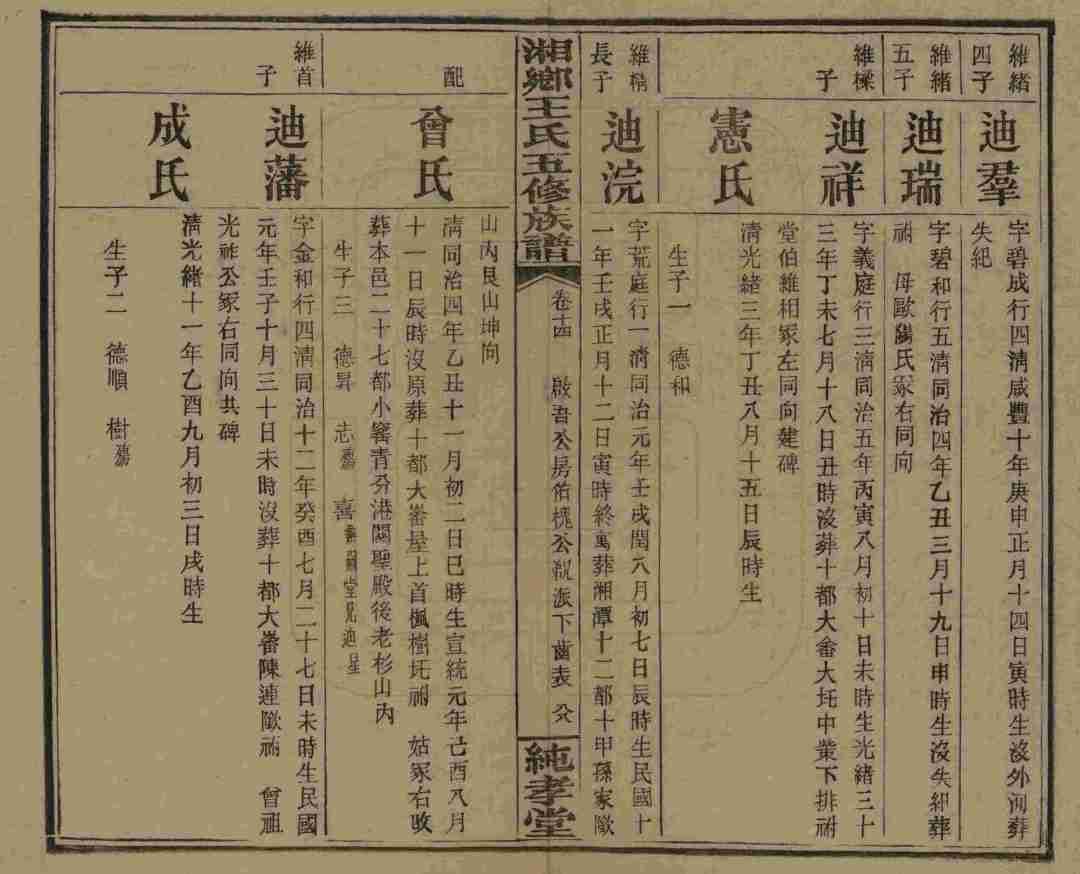 維緒
四子
迪羣
字碧成行四淸咸豐十年庚申正月十四日寅時生沒外河葬
失紀
維緒
五子
迪瑞
字碧和行五淸同治四年乙丑三月十九日申時生沒失紀葬
祔 母歐陽氏冢右同向
維樑
子
迪祥
字義庭行三淸同治五年丙寅八月初十日未時生光緒三十
三年丁未七月十八日丑時沒葬十都大畨大圫中業下排祔
堂伯維相冢左同向建碑
憲氏
淸光緒三年丁丑八月十五日辰時生
生子一 德和
維精
長子
迪浣
字荒庭行一淸同治元年壬戌閏八月初七日辰時生民國十
一年壬戌正月十二日寅時終寓葬湘潭十二都十甲孫家
湘鄉王氏五修族譜
卷十四 啟吾公房佑槐公 派下齒表
純孝堂
山內艮山坤向
配
曾氏
淸同治四年乙丑十一月初二日巳時生宣統元年己酉八月
十一日辰時沒原葬十都大畨屋上首楓樹圫祔 姑冢右改
葬本邑二十七都小 靑 港關聖殿後老杉山內
生子三 德昇 志 喜 堂兄迪星
維首
子
迪藩
字金和行四淸同治十二年癸酉七月二十七日未時生民國
元年壬子十月三十日未時沒葬十都大畨陳連 祔 曾祖
光祚公冢右同向共碑
成氏
淸光緒十一年乙酉九月初三日戌時生
生子二 德順 樹